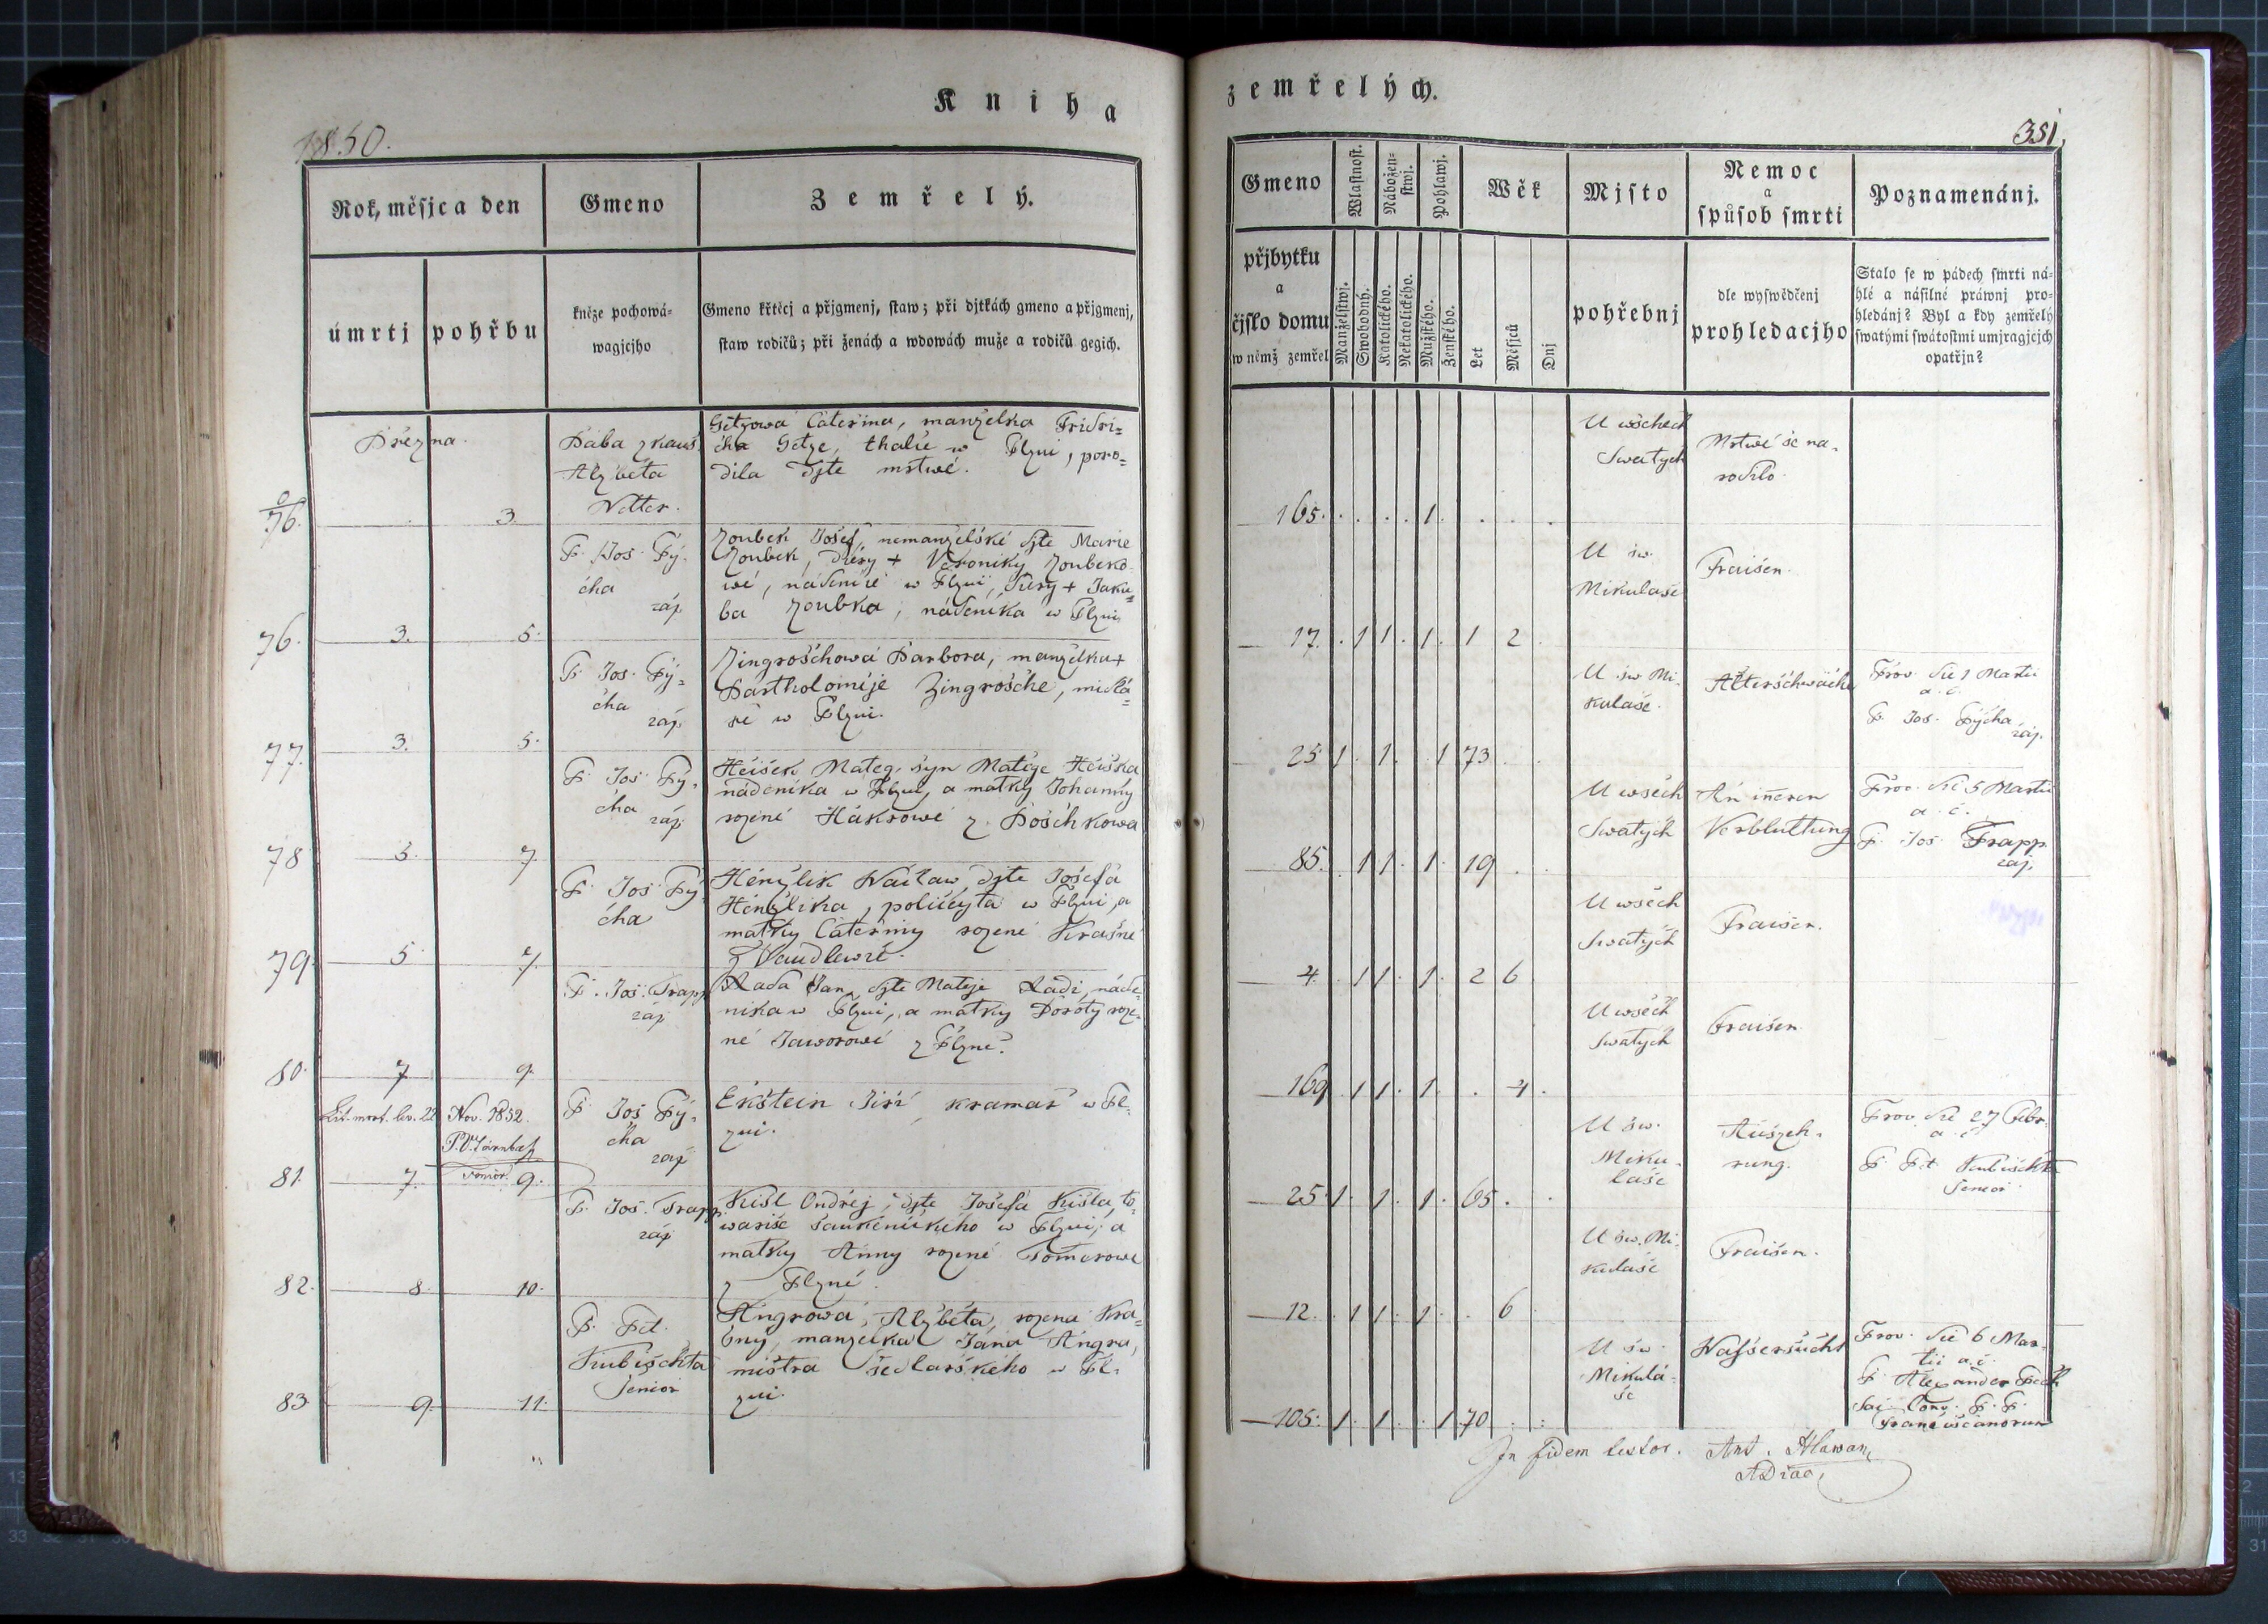 Kniha
zemřelých.
1850.
351.
Rok, měsjc a den
Gmeno
Zemřelý.
úmrtj
pohřbu
kněze pochowá-
wagjcjho
Gmeno křtěcj a přjgmenj, staw; při djtkách gmeno a přjgmenj,
staw rodičů; při ženách a wdowách muže a rodičů gegich.
Gmeno
přjbytku
a
čjslo domu
w němž zemřel
Wlastnost.
Manželstwj.
Swobodný.
Nábožen-
stwj.
Katolického.
Nekatolického.
Pohlawj.
Mužského.
Ženského.
Wěk
Let
Měsjců
Dnj
Mjsto
pohřebnj
Nemoc
a
spůsob smrti
dle wyswědčenj
prohledacjho
Poznamenánj.
Stalo se w pádech smrti ná-
hlé a násilné práwnj pro-
hledánj? Byl a kdy zemřelý
swatými swátostmi umjragjcjch
opatřjn?
Března
0/76.
3
Bába zkauš.
Alžběta
Netter.
Getzowá Cateřina, manželka Fridri=
cha Getze, w Plzni, poro=
dila djte mrtwé.
165. 1
U wschech
Swatých
Mrtwé se na-
rodilo.
76. 3. 5.
P. Jos. Pý-
cha
záp.
Zoubek Josef, nemanželské djte Marie
Zoubek, dcéry + Veroniky Zoubko-
wé, nádenice w Plzni, dcery + Jaku=
ba Zoubka, nádeníka w Plzni
17. 1 1 1 1 2
U sw.
Mikulaše
Fraisen.
77. 3. 5.
P. Jos. Pý=
cha
záp.
Zingroschowá Barbora, manželka +
Bartholoměje Zingrosche, midlá=
ře w Plzni.
25 1 1 1 73
U sw Mi-
kuláše.
Alterschwäche
Prov. die 1 Martii
a. c.
P. Jos. Pýcha
záp.
78 5. 7.
P. Jos. Pý-
cha záp.
Heisek Mateg, syn Matěje Heiska
nádeníka w Plzni, a matky Johanny
rozené Hákrowé z
85. 1 1 1 19
U wsech
Swatých
An inneren
Verbluttung
Prov. die 5 Martii
a. c.
P. Jos. Trapp
záp.
79. 5. 7.
P. Jos Pý-
cha
Henžlik Waclaw, djte Josefa
Henžlika, policyta w Plzni, a
matky Cateřiny rozené Krasné
z
4. 1 1 1 2 6
U wsech
Swatých
Fraisen.
80. 7 9.
P. Jos. Trapp
záp
Rada Jan, djte Matěje Radi, náde-
nika w Plzni, a matky Doroty roze-
né Jaworowé z Plzně.
169 1 1 1 4
U wsech
Swatých
Fraisen.
81. 7. 9.
Lit. mort. lev. 22 Nov. 1852.
P. Jos Pý-
cha
záp
Ekstein Jiří kramař w Pl-
zni.
25 1 1 1 65.
U sw.
Miku-
laše
Auszeh-
rung.
Prov. die 27 Febr.
a. c.
P. Pet. Kubischta
Senior
82. 8. 10.
P. Jos. Trapp
záp
Kisl Ondřej, djte Josefa Kisla, to-
wariše saukenického w Plzni, a
matky Anny rozené Tomerowé
z Plzně.
12. 1 1 1 6
U sw. Mi-
kulaše
Fraisen.
83. 9. 11.
P. Pet.
Kubischta
Senior
Angrowá, Alžběta, rozená Kra=
, manželka Jána Angra,
mistra sedlarského w Pl-
zni.
105. 1. 1. 1 70
U sw
Mikulá-
še
Wassersucht
Prov. die 6 Mar-
tii a. c.
P. Alexander
P. P.
Franciscanorum
In fidem testor. Ant. Hlawan,